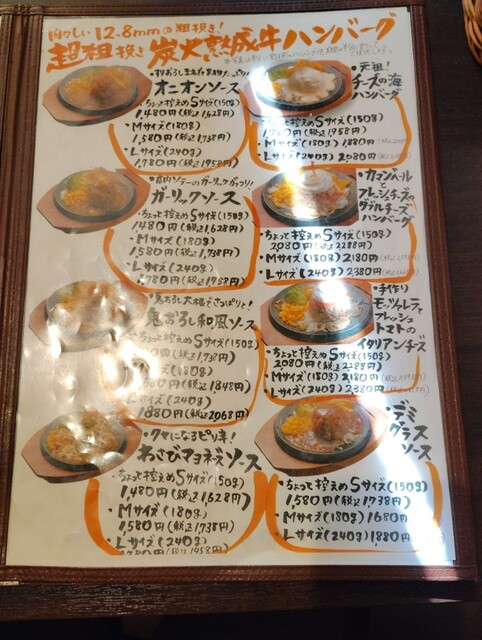 肉々しい 12.8mmの粗挽き!
超粗挽き 炭火熟成牛ハンバーグ
オニオンソース
・ちょっと控えめSサイズ(150g)
1,480円(税込1,628円)
・Mサイズ(180g)
1,580円(税込1,738円)
・Lサイズ(240g)
1,780円(税込1,958円)
ガーリックソース
・ちょっと控えめSサイズ(150g)
1,480円(税込1,628円)
・Mサイズ(180g)
1,580円(税込1,738円)
・Lサイズ(240g)
1,780円(税込1,958円)
鬼おろし大根でさっぱりと!
鬼おろし和風ソース
ちょっと控えめSサイズ(150g)
円(税込1,738円)
サイズ(180g)
円(税込1,848円)
Lサイズ(240g)
1,880円(税込2,068円)
・クセになるピリ辛!
わさびマヨネーズソース
・ちょっと控えめSサイズ(150g)
1,480円(税込1,628円)
・Mサイズ(180g)
1,580円(税込1,738円)
・Lサイズ(240g)
円(税込1,958円)
・元祖!
チーズの海
ハンバーグ
・ちょっと控えめSサイズ(150g)
円(税込1,958円)
・Mサイズ(180g)1,880円
・Lサイズ(240g)2,080円
・カマンベールと
フレッシュチーズの
ダブルチーズ
ハンバーグ
・ちょっと控えめSサイズ(150g)
2,080円(税込2,288円)
・Mサイズ(180g)2,180円
・Lサイズ(240g)2,380円
・手作り
モッツァレラと
フレッシュ
トマトの
イタリアンチーズ
・ちょっと控えめSサイズ(150g)
2,080円(税込2,288円)
・Mサイズ(180g)2,180円
・Lサイズ(240g)2,380円
・デミ
グラス
ソース
・ちょっと控えめSサイズ(150g)
1,580円(税込1,738円)
・Mサイズ(180g)1,680円
・Lサイズ(240g)1,880円